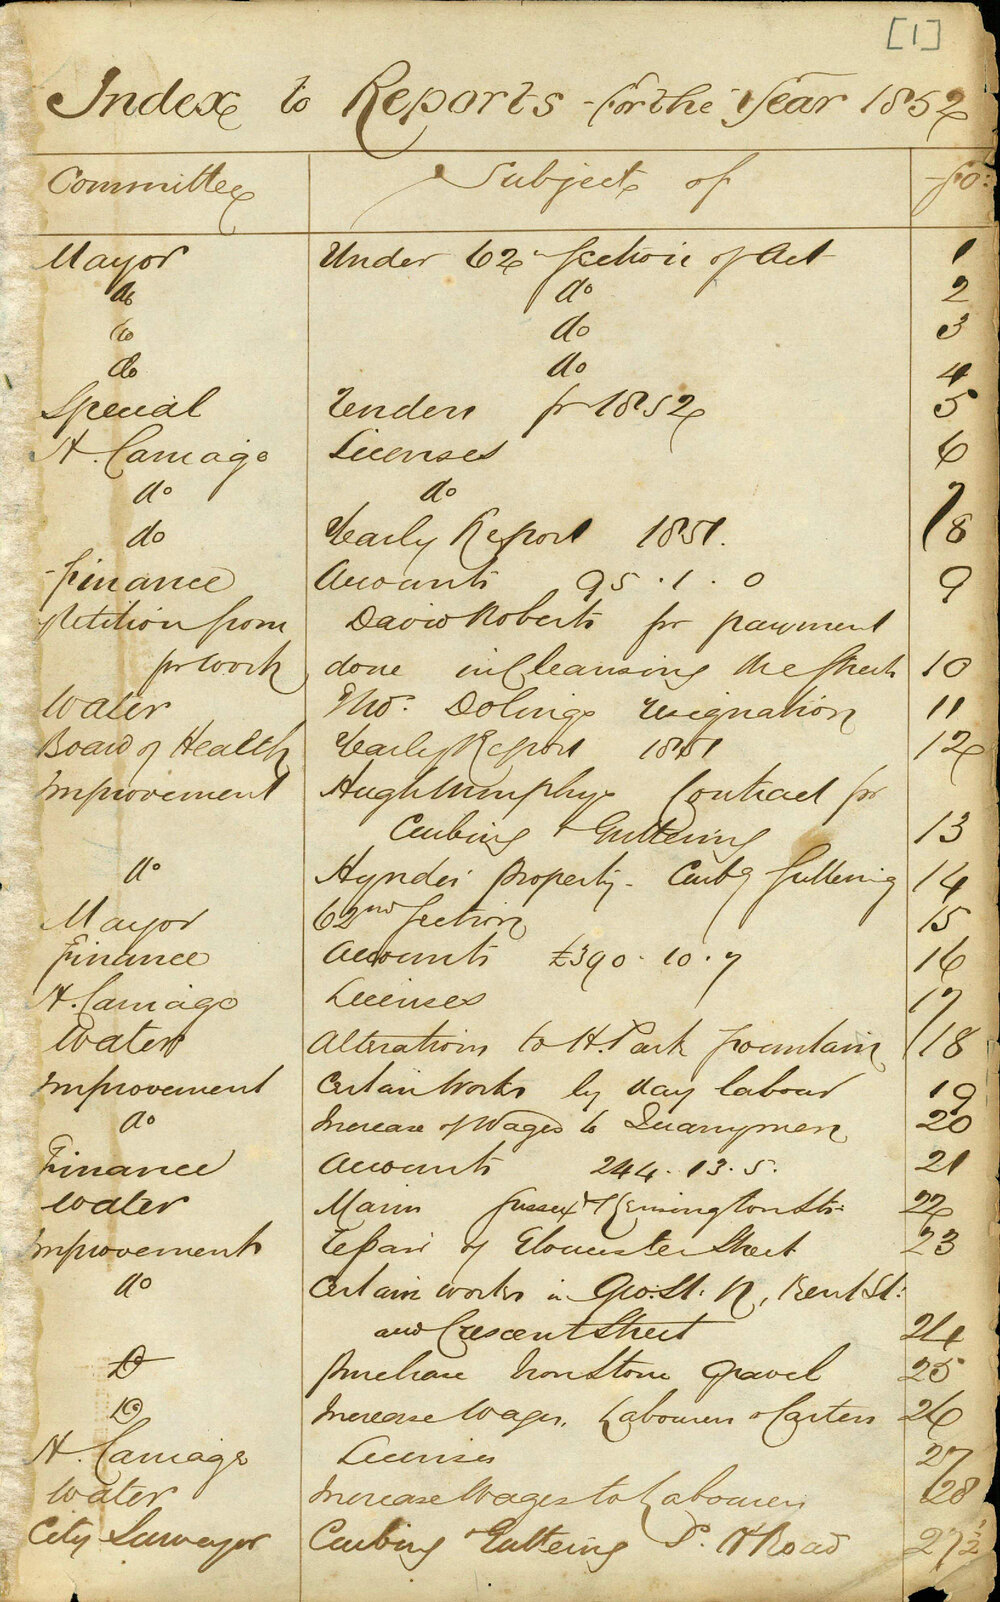 [1]
Index to Reports for the Year 1852
Committee Subject of fo:
Mayor Under 62 Section of Act 1
do do 2
do do 3
do do 4
Special Tenders for 1852 5
H. Carriage Licenses 6
do do 7
do Yearly Report 1851. 8
Finance Accounts 95.1.0 9
Petition from David Roberts for payment
for work done in Cleansing the Streets 10
Water Thos. Dolings resignation 11
Board of Health Yearly Report 1851 12
Improvement Hugh Murphys Contract for
Curbing & Guttering 13
do Hyndes Property - Curbg Guttering 14
Mayor 62nd Section 15
Finance Accounts £390.10.7 16
H. Carriage Licenses 17
Water Alterations to H. Park fountain 18
Improvement Certain Works by day labour 19
do Increase of Wages to Quarrymen 20
Finance Accounts 244.13.5. 21
Water Mains Sussex & Kensington Sts: 22
Improvement Repair of Gloucester Street 23
do Certain works in Geo. St. N, Kent St:
and Crescent Street 24
Do Purchase Iron Stone Gravel 25
Do Increase Wages, Labourers & Carters 26
H. Carriage Licenses 27
Water Increase Wages to Labourers 28
City Surveyor Curbing & Guttering P. H Road 27½